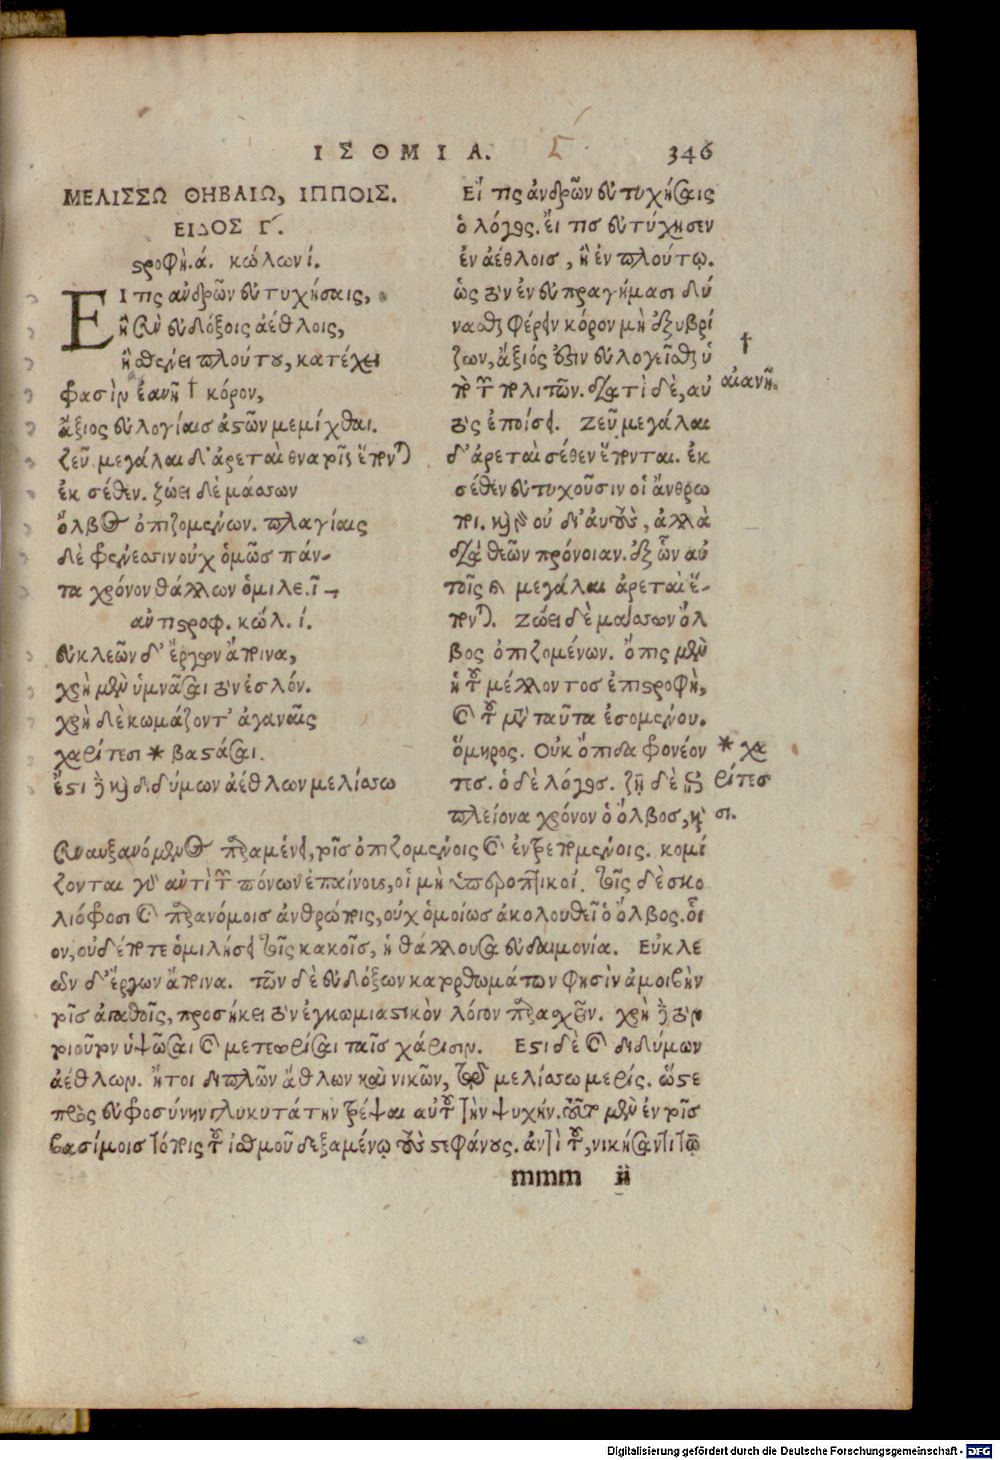 ΙΣΘΜΙΑ. 346
ΜΕΛΙΣΣΩ ΘΗΒΑΙΩ, ΙΠΠΟΙΣ.
ΕΙΔΟΣ Γ΄.
στροφὴ.ά. κώλων ί.
Εἴ τις ἀνδρῶν εὐτυχήσαις,
ἢ σὺν εὐδόξοις ἀέθλοις,
ἢ σθένει πλούτου, κατέχει
φρασὶν ἐανῆ † κόρον,
ἄξιος εὐλογίαισ ἀστῶν μεμίχθαι.
ζεῦ μεγάλαι δ' ἀρεταὶ θνατοῖς ἕπονται
ἐκ σέθεν. ζώει δὲ μάσσων
ὄλβος ὀπιζομένων. πλαγίαις
δὲ φρένεσσιν οὐχ ὁμῶσ πάν-
τα χρόνον θάλλων ὁμιλεῖ
ἀντιστροφ. κώλ. ί.
εὐκλεῶν δ' ἔργων ἄποινα,
χρὴ μὲν ὑμνᾶσαι τὸν ἐσλόν.
χρὴ δὲ κωμάζοντ' ἀγαναῖς
χαρίτεσι * βαστάσαι.
ἔστι δὲ καὶ διδύμων ἀέθλων μελίσσω
Εἴ τις ἀνδρῶν εὐτυχήσαις
ὁ λόγος. εἴ τισ εὐτύχησεν
ἐν ἀέθλοισ, ἢ ἐν πλούτῳ.
ὡς τὸν ἐν εὐπραγήμασι δύ
νασθαι φέρειν κόρον μὴ ἐξυβρί
ζων, ἄξιός ἐστιν εὐλογεῖσθαι ὑ
πὸ τῶν πολιτῶν. διατὶ δὲ, αὐ
τὸς ἐποίσει. Ζεῦ μεγάλαι
δ' ἀρεταὶ σέθεν ἕπονται. ἐκ
σέθεν εὐτυχοῦσιν οἱ ἄνθρω
ποι. καὶ οὐ δι' αὑτοὺς, ἀλλὰ
διὰ θεῶν πρόνοιαν. ἐξ ὧν αὐ
τοῖς αἱ μεγάλαι ἀρεταὶ ἕ-
πονται. Ζώει δὲ μάσσων ὄλ
βος ὀπιζομένων. ὄπις μὲν
ἡ τοῦ μέλλοντοσ ἐπιστροφὴ,
καὶ τοῦ μετὰ ταῦτα ἐσομένου.
ὅμηρος. Οὐκ ὄπιδα φρονέον
τεσ. ὁ δὲ λόγος. ζῇ δὲ ἐπὶ
πλείονα χρόνον ὁ ὄλβοσ, καὶ
†
αἰανῆ.
* χα
ρίτεσ
σι.
συναυξανόμενος παραμένει, τοῖς ὀπιζομένοις καὶ ἐντρεπομένοις. κομί
ζονται γὰρ ἀντὶ τῶν πόνων ἐπαίνους, οἱ μὴ ὑπεροπτικοί. τοῖς δὲ σκο
λιόφροσι καὶ παρανόμοισ ἀνθρώποις, οὐχ ὁμοίωσ ἀκολουθεῖ ὁ ὄλβος. οἷ
ον, οὐδέποτε ὁμιλήσει τοῖς κακοῖσ, ἡ θάλλουσα εὐδαιμονία. Εὐκλέ
ων δ' ἔργων ἄποινα. τῶν δὲ εὐδόξων κατορθωμάτων φησὶν ἀμοιβὴν
τοῖς ἀγαθοῖς, προσήκει τὸν ἐγκωμιαστικὸν λόγον παρασχεῖν. χρὴ δὲ τὸν
τοιοῦτον ὑψῶσαι καὶ μετεωρίσαι ταῖσ χάρισιν. Εστι δὲ καὶ διδύμων
ἀέθλων. ἤτοι διπλῶν ἄθλων καὶ νικῶν, τῷ μελίσσω μερίς. ὥστε
πρὸς εὐφροσύνην γλυκυτάτην τρέψαι αὐτοῦ τὴν ψυχήν. τοῦτο μὲν ἐν τοῖσ
βασίμοισ τόποις τοῦ ἰσθμοῦ δεξαμένῳ τοὺς στεφάνους. ἀντὶ τοῦ, νικήσαντι τῷ
mmmm ii
Digitalisierung gefördert durch die Deutsche Forschungsgemeinschaft - DFG